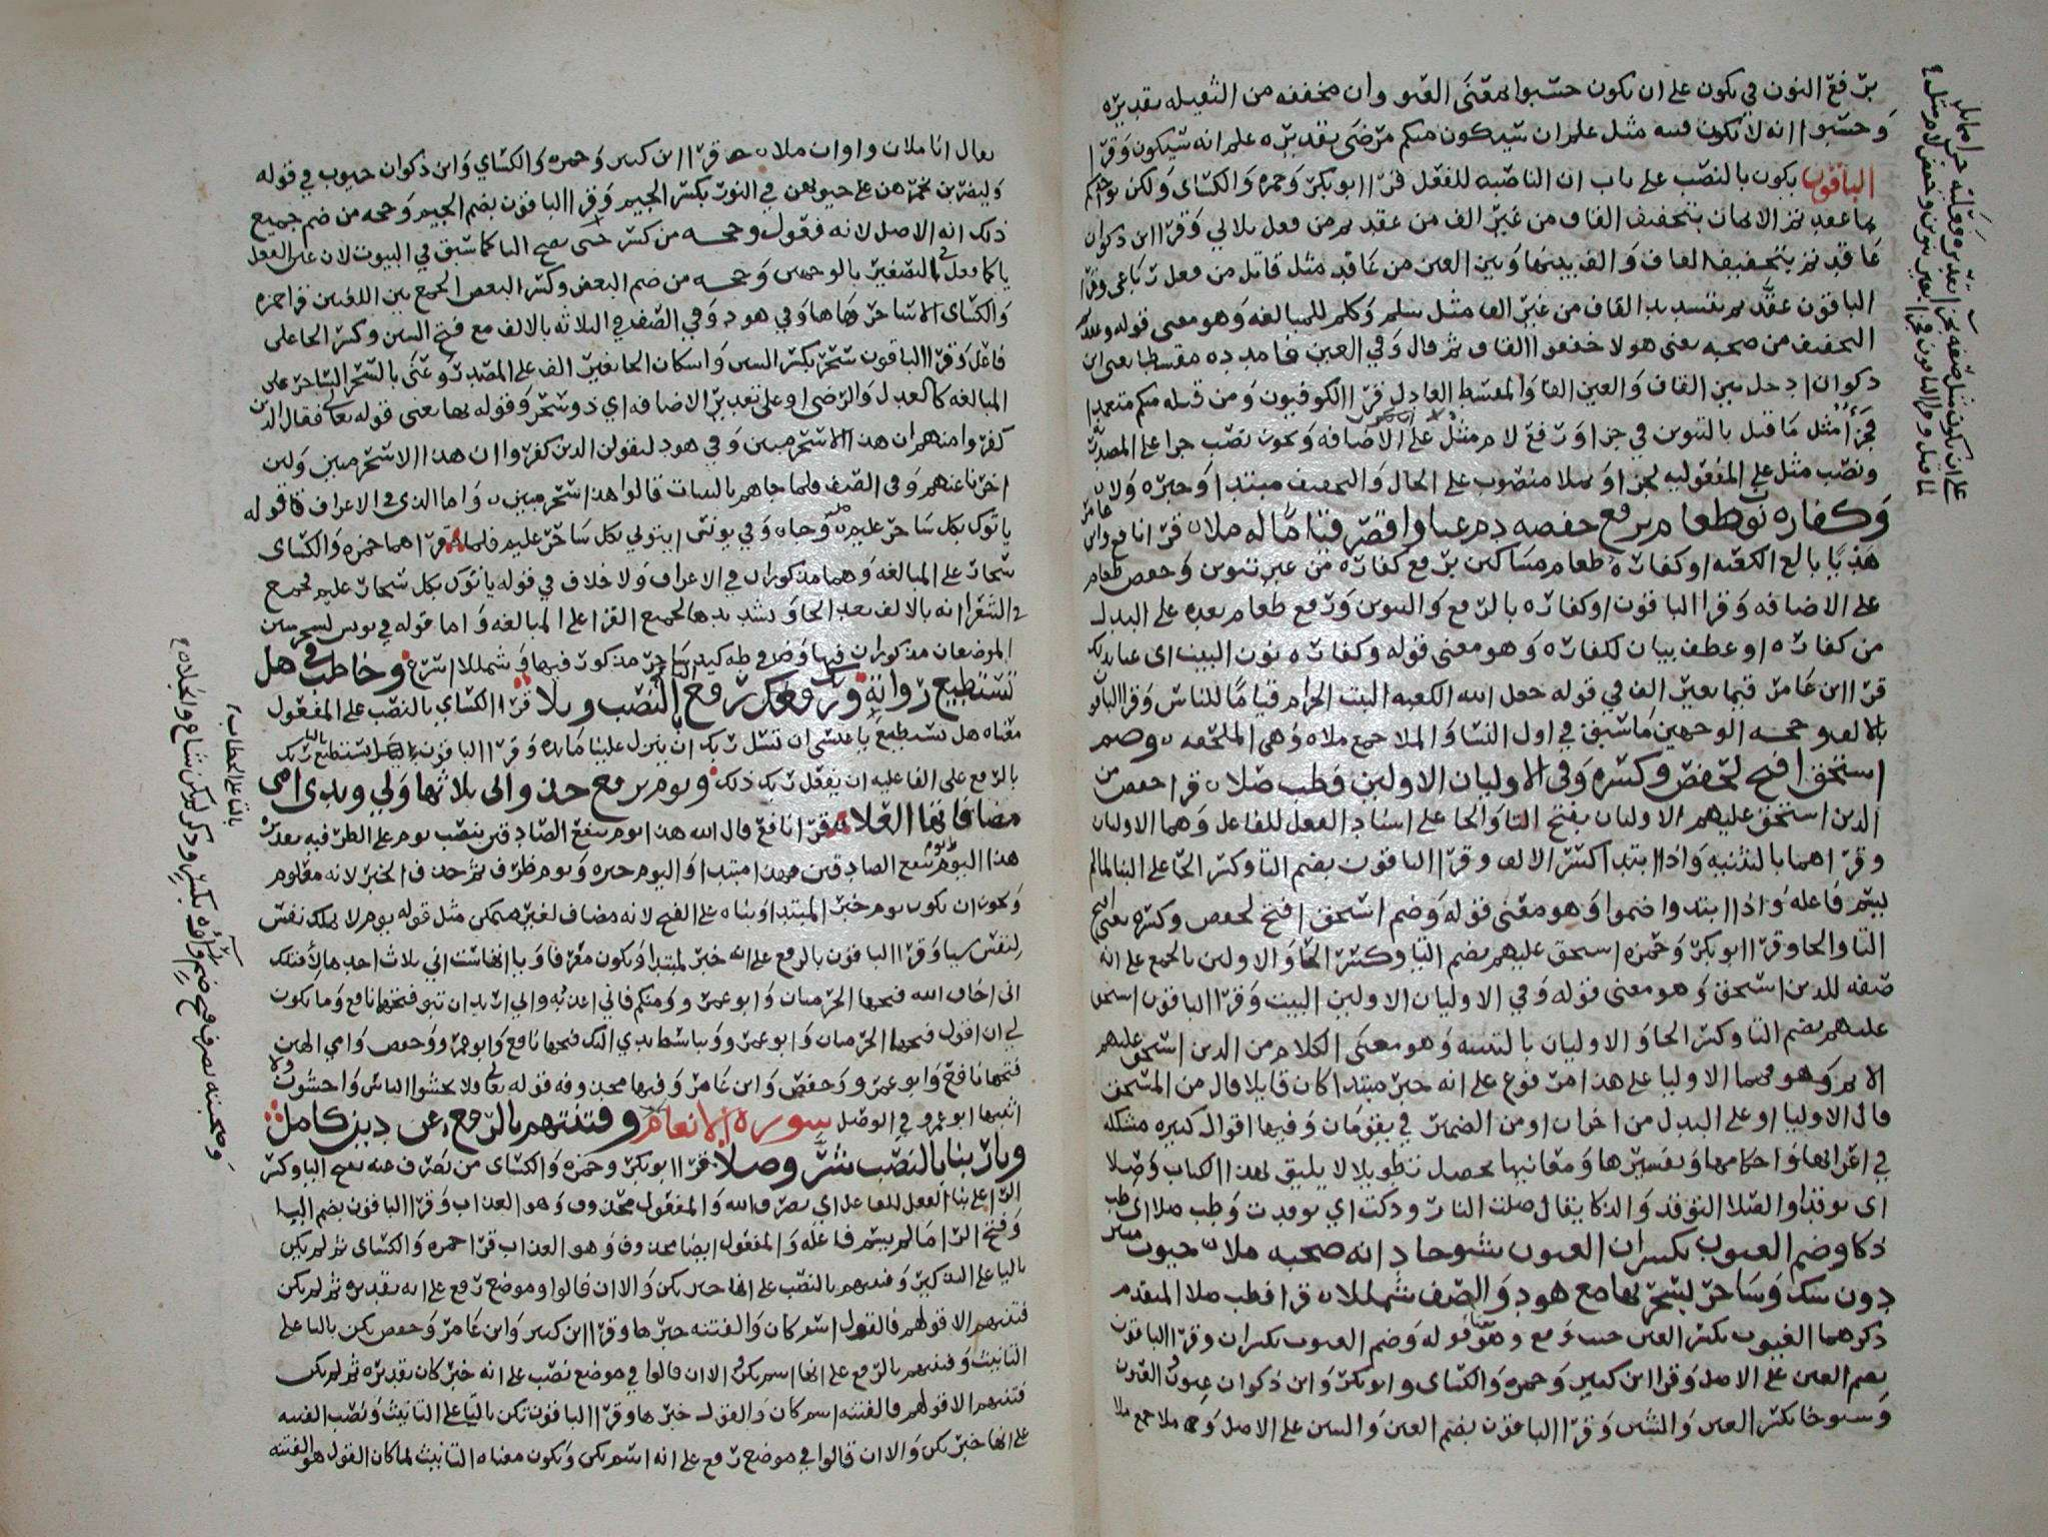 برفع النون في يكون على ان يكون حسبوا بمعنى العلم وان مخففه من الثقيله تقديره
وحسبوا انه لا تكون فتنه مثل علم ان سيكون منكم مرضى تقديره علم انه سيكون وقرا
الباقون يكون بالنصب على باب ان الناصبه للفعل قرا ابو بكر وحمزه والكساى ولكن يواخذكم
بما عقدتم الايمان بتخفيف القاف من غير الف من عقد يرمن فعل ثلاثي وقرا ابن ذكوان
عاقدتم بتخفيف القاف والف بينها وبين العين من عاقد مثل قاتل من فعل رباعى وقرا
الباقون عقدتم بتشديد القاف من غير الف مثل سلم وكلم للمبالغه وهو معنى قوله
التخفيف من صحبه يعنى هولا خففوا القاف ثم قال وفي العين فامدده مقسطا يعنى ابن
ذكوان ادخل بين القاف والعين الفا والمقسط العادل قرا الكوفيون ومن قتله منكم متعمدا
فجزاء مثل ما قتل بالتنوين في جزا ورفع لام مثل على الاضافه ويجوز نصب جزا على المصدر
ونصب مثل على المفعوليه لجزا وثملا منصوب على الحال والتخفيف مبتدا وخبره ولا
وكفارة نون طعام برفع خفضه دم غنا واقصر قياما له ملا قرا نافع وابن عامر
هديا بالغ الكعبه او كفارة طعام مساكين برفع كفارة من غير تنوين وخفض طعام
على الاضافه وقرا الباقون او كفارة بالرفع والتنوين ورفع طعام بعده على البدل
من كفارة او عطف بيان لكفارة وهو معنى قوله وكفارة نون البيت اى
قرا ابن عامر قيما بغير الف في قوله جعل الله الكعبه البيت الحرام قياما للناس وقرا الباقون
بالالف وحجه الوجهين ما سبق في اول النسا والملا جمع ملاه وهي الملحفه وضم
استحق افتح لحفص وكسره وفى الاوليان الاولين فطب صلا قرا حفص من
الذين استحق عليهم الاوليان بفتح التا والحا على اسناد الفعل للفاعل وهما الاوليان
وقراهما بالتثنيه واذا ابتدا كسر الالف وقرا الباقون بضم التا وكسر الحا على البنا لما لم
يسم فاعله واذا ابتدوا ضموا وهو معنى قوله وضم استحق افتح لحفص وكسره يعنى افتح
التا والحا وقرا ابو بكر وحمزه استحق عليهم بضم التا وكسر الحا والاولين بالجمع على انه
صفه للذين استحق وهو معنى قوله وفي الاوليان الاولين البيت وقرا الباقون استحق
عليهم بضم التا وكسر الحا والاوليان بالتثنيه وهو معنى الكلام من الذين استحق عليهم
الاثم وهو فهما الاوليا على هذا مرفوع على انه خبر مبتدا كان قايلا قال من المستحق
قال الاوليا او على البدل من اخران او من الضمير في يقومان وفيها اقوال كثيره مشكله
في اعرابها واحكامها وتفسيرها ومعانيها يحصل تطويلا لا يليق بهذا الكتاب وصلا
اى توقدا والصلا التوقد والذكا يقال صلت النار وذكت اي توقدت وطب صلا اى طب
ذكا وضم الغيوب يكسران العيون شيوخا دانه صحبه ملا جيوب منير
دون شك وساحر لسحر بها مع هود والصف شمللا قرا فطب صلا المتقدم
ذكرهما الغيوب بكسر الغين حيث وقع وهو قوله وضم الغيوب يكسران وقرا الباقون
بضم الغين على الاصل وقرا ابن كثير وحمزه والكساى وابو بكر وابن ذكوان عيون العيون
وشيوخا بكسر العين والشين وقرا الباقون بضم العين والشين على الاصل وملا جمع ملا
يقال انا ملان واوان ملا قرا ابن كثير وحمزه والكساي وابن ذكوان جيوب في قوله
وليضربن بخمرهن على جيوبهن في النور بكسر الجيم وقرا الباقون بضم الجيم وحجه من ضم جميع
ذلك انه الاصل لانه فعول وحجه من كسر حتى تصح اليا كما سبق في البيوت لان عين الفعل
يا كما فعل في التصغير بالوجهين وحجه من ضم البعض وكسر البعض الجمع بين اللغتين قرا حمزه
والكساى الا ساحر هاهنا وفي هود وفي الصف في الثلاثه بالالف مع فتح السين وكسر الحا على
فاعل وقرا الباقون سحر بكسر السين واسكان الحا بغير الف على المصدر وعنى بالسحر الساحر على
المبالغه كالعدل والرضى او على تقدير الاضافه اي ذو سحر وقوله بها يعنى قوله تعالى فقال الذين
كفروا منهم ان هذا الا سحر مبين وفي هود ليقولن الذين كفروا ان هذا الا سحر مبين ولئن
اخرنا عنهم وفي الصف فلما جاهم بالبينات قالوا هذا سحر مبين واما الذى في الاعراف فاقوله
ياتوك بكل ساحر عليم وجاه وفي يونس ايتوني بكل ساحر عليم فلما قراهما حمزه والكساى
سحار على المبالغه وهما مذكوران في الاعراف ولا خلاف في قوله ياتوك بكل سحار عليم لجميع
في الشعرا انه بالالف بعد الحا وتشديدها لجميع القرا على المبالغه واما قوله في يونس لسحر مبين
الموضعان مذكوران فيها وفي طه كيد ساحر مذكور فيها وشمللا اسرع وخاطب في هل
تستطيع رواته وربك رفع البا بالنصب وتلا قرا الكساي بالنصب على المفعول
معناه هل تستطيع يا عيسى ان تسل ربك ان ينزل علينا مايده وقرا الباقون هل يستطيع ربك
بالرفع على الفاعليه ان يفعل ربك ذلك ويوم برفع خذ وانى ثلاثها ولي ويدى امى
مضافاتها العلا قرا نافع قال الله هذا يوم ينفع الصادقين بنصب يوم على الظرفيه تقديره
هذا اليوم ينفع الصادقين فهذا مبتدا واليوم خبره ويوم ظرف ثم حذف الخبر لانه معلوم
ويجوز ان يكون يوم خبر المبتدا وبناه على الفتح لانه مضاف لغير متمكن مثل قوله يوم لا تملك نفس
لنفس شيا وقرا الباقون بالرفع على انه خبر لمبتدا ويكون معرفا ويا اتها ست اني ثلاث احدها لاقتلك
انى اخاف الله فتحها الحرميان وابو عمرو ومنكم فاني اعذبه واني اريد ان تبوء فتحها نافع وما يكون
لي ان اقول فتحها الحرميان وابو عمرو وبباسط يدي اليك فتحها نافع وابو عمرو وحفص وامي الهين
فتحها نافع وابو عمرو وحفص وابن عامر وفيها محذوفه قوله تعالى ولا تخشوا الناس واخشون ولا
اثبتها ابو عمرو في الوصل سورة الانعام وفتنتهم بالرفع عن دين كامل
وبا ربنا بالنصب شرف وصلا قرا ابو بكر وحمزه والكساى من يصرف عنه بفتح اليا وكسر
الرا على بنا الفعل للفاعل اي يصرف الله والمفعول محذوف وهو العذاب وقرا الباقون بضم اليا
وفتح الرا ما لم يسم فاعله والمفعول ايضا محذوف وهو العذاب قرا حمزه والكساى ثم لم يكن
باليا على التذكير وفتنتهم بالنصب على انها خبر يكن والا ان قالوا موضع رفع على انه تقديره ثم لم يكن
فتنتهم الا قولهم فالقول اسم كان والفتنه خبرها وقرا ابن كثير وابن عامر وحفص تكن بالتا على
التانيث وفتنتهم بالرفع على انها اسم يكن والا ان قالوا في موضع نصب على انه خبر كان تقديره ثم لم يكن
فتنتهم الا قولهم فالفتنه اسم كان والقول خبرها وقرا الباقون تكن بالتا على التانيث ونصب الفتنه
على انها خبر يكن والا ان قالوا في موضع رفع على انه اسم يكن ويكون معناه التانيث لما كان القول هو الفتنه
بالتا على الخطاب
وصحبته يصرف فتح ضم وراوه بكسر وذكر لم يكن شاع وانجلا